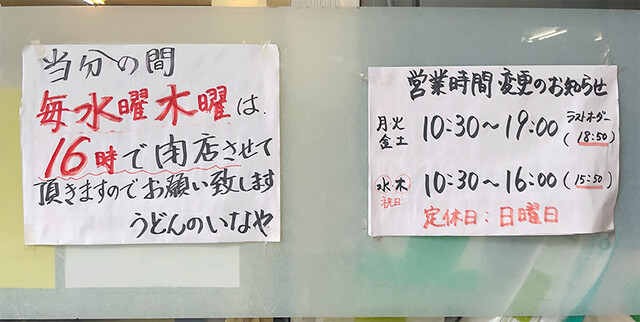 当分の間
毎水曜木曜は、
16時で閉店させて
頂きますのでお願い致します
うどんのいなや
営業時間変更のお知らせ
月火金土 10:30〜19:00 (ラストオーダー 18:50)
水木祝日 10:30〜16:00 (15:50)
定休日:日曜日